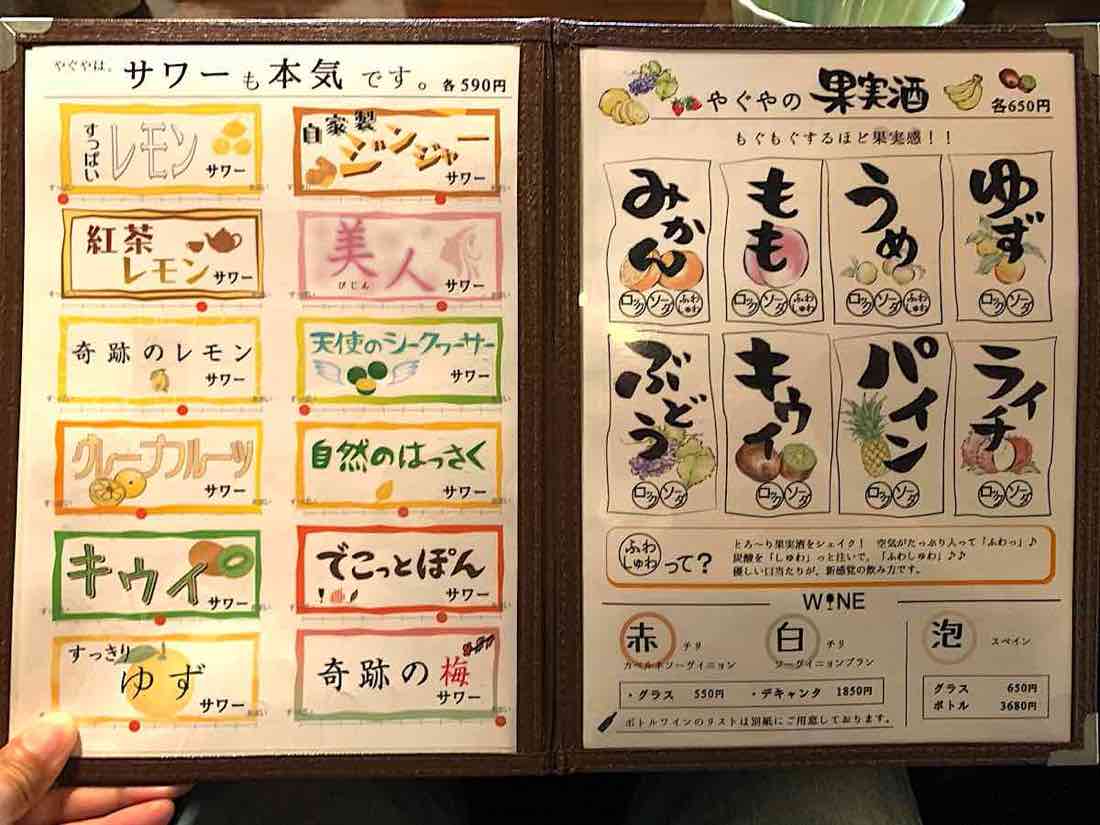 やぐやは、サワーも本気です。各590円
すっぱい
レモン
サワー
自家製
ジンジャー
サワー
紅茶
レモンサワー
美人
びじん
サワー
奇跡のレモン
サワー
天使のシークヮーサー
サワー
グレープフルーツ
サワー
自然のはっさく
サワー
キウイ
サワー
でこっとぽん
サワー
すっきり
ゆず
サワー
奇跡の梅
サワー
やぐやの果実酒 各650円
もぐもぐするほど果実感！！
みかん
ロック ソーダ ふわしゅわ
もも
ロック ソーダ ふわしゅわ
うめ
ロック ソーダ ふわしゅわ
ゆず
ロック ソーダ
ぶどう
ロック ソーダ
キウイ
ロック ソーダ
パイン
ロック ソーダ
ライチ
ロック ソーダ
ふわしゅわって？
とろ〜り果実酒をシェイク！ 空気がたっぷり入って「ふわっ」♪
炭酸を「しゅわ」っと注いで、「ふわしゅわ」♪♪
優しい口当たりが、新感覚の飲み方です。
WINE
赤 チリ
カベルネソーヴィニヨン
白 チリ
ソーヴィニヨンブラン
・グラス 550円 ・デキャンタ 1850円
ボトルワインのリストは別紙にご用意しております。
泡 スペイン
グラス 650円
ボトル 3680円